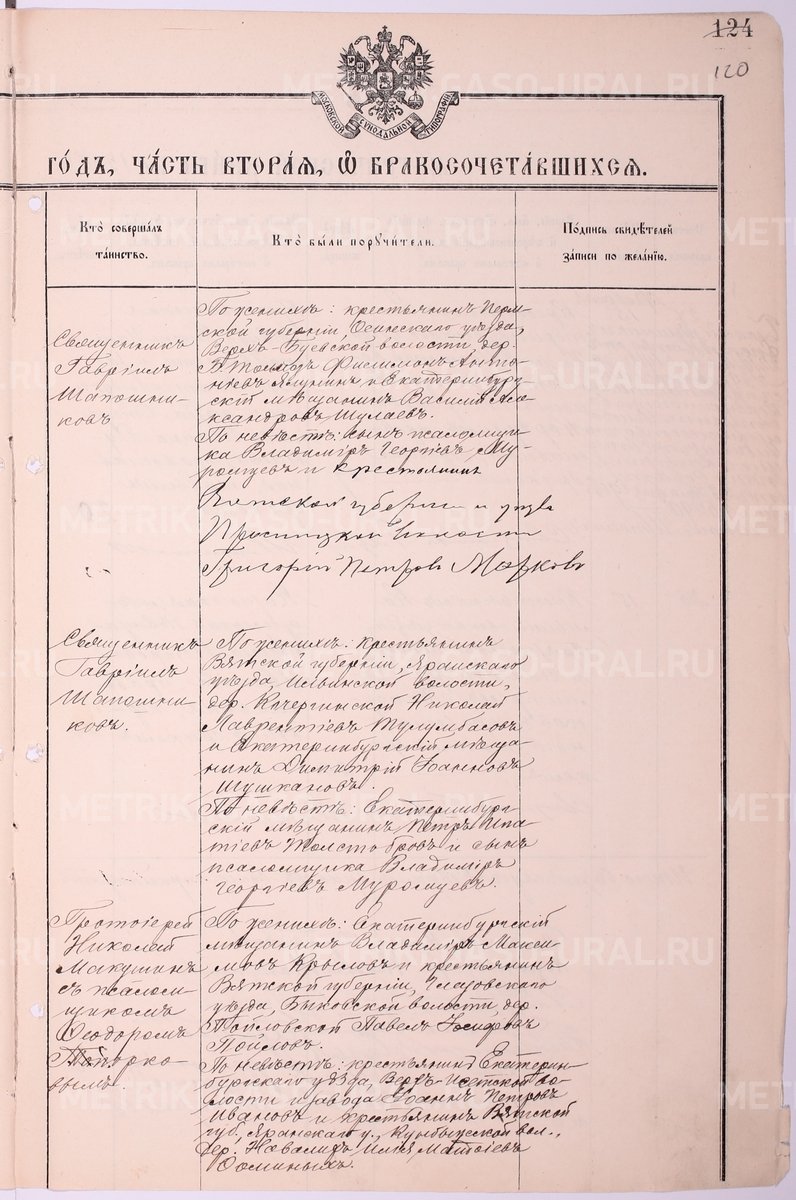 124
120
МОСКОВСКОЙ СУНОДАЛЬНОЙ ТИПОГРАФIИ
ГО́ДЪ, ЧА́СТЬ ВТОРА́Я, Ѽ БРАКОСОЧЕТА́ВШИХСЯ.
Кто̀ соверша́лъ
та́инство.
Кто̀ бы́ли порꙋчи́тели.
По́дпись свидѣ́телей
за́писи по жела́нїю.
Священникъ
Гаврiилъ
Шапошни-
ковъ
По женихѣ: крестьянинъ Перм-
ской губернiи, Осинскаго уѣзда,
Верхъ-Буевской волости, дер.
Филимонъ Анто-
нiевъ и Екатеринбург-
скiй мѣщанинъ Василiй Але-
ксандровъ Шулаевъ.
По невѣстѣ: сынъ псаломщи-
ка Владимiръ Георгiевъ Му-
ромцевъ и крестьянинъ
Вятской губернiи и уѣзда
волости
Григорiй Петровъ Марковъ
Священникъ
Гаврiилъ
Шапошни-
ковъ.
По женихѣ: крестьянинъ
Вятской губернiи, Яранскаго
уѣзда, Ильинской волости,
дер. Кочергинской Николай
Лаврентiевъ Тулумбасовъ
и Екатеринбургскiй мѣща-
нинъ Димитрiй Iоанновъ
Шушкановъ.
По невѣстѣ: Екатеринбург-
скiй мѣщанинъ Петръ Ипа-
тiевъ Толстобровъ и сынъ
псаломщика Владимiръ
Георгiевъ Муромцевъ.
Протоiерей
Николай
Макушинъ
съ псалом-
щикомъ
Ѳеодоромъ
Топорко-
вымъ.
По женихѣ: Екатеринбургскiй
мѣщанинъ Владимiръ Макси-
мовъ Крыловъ и крестьянинъ
Вятской губернiи, Глазовскаго
уѣзда, Быковской волости, дер.
Пойловской Павелъ Iосифовъ
Пойловъ.
По невѣстѣ: крестьянинъ Екатерин-
бургскаго уѣзда, Верхъ-Исетской во-
лости и завода Iоаннъ Петровъ
Ивановъ и крестьянинъ Вятской
губ., Яранскаго у., вол.,
дер. Илiя Матѳiевъ
Ѳоминыхъ.